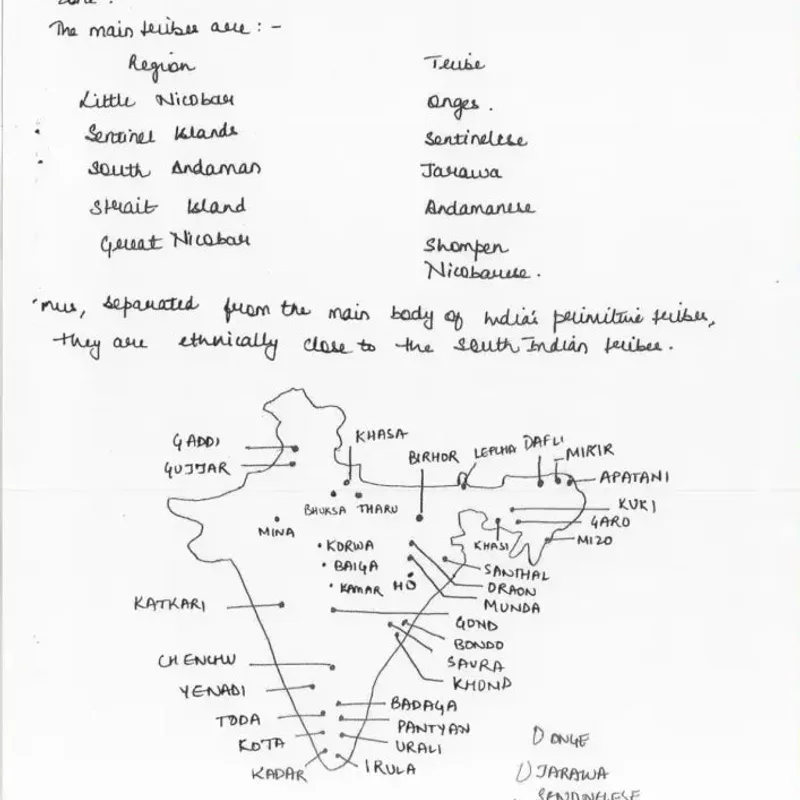 The main tribes are : -
Region Tribe
Little Nicobar Onges .
Sentinel Islands Sentinelese
South Andaman Jarawa
Strait Island Andamanese
Great Nicobar Shompen
Nicobarese .
Thus, separated from the main body of India's primitive tribes,
they are ethnically close to the South Indian tribes .
GADDI
GUJJAR
KHASA
BIRHOR
LEPCHA
DAFLI
MIKIR
APATANI
BHUKSA
THARU
KUKI
GARO
MINA
KHASI
MIZO
KORWA
BAIGA
KAMAR
HO
SANTHAL
ORAON
MUNDA
KATKARI
GOND
BONDO
SAVRA
KHOND
CHENCHU
YENADI
BADAGA
TODA
PANIYAN
KOTA
URALI
KADAR
IRULA
ONGE
JARAWA